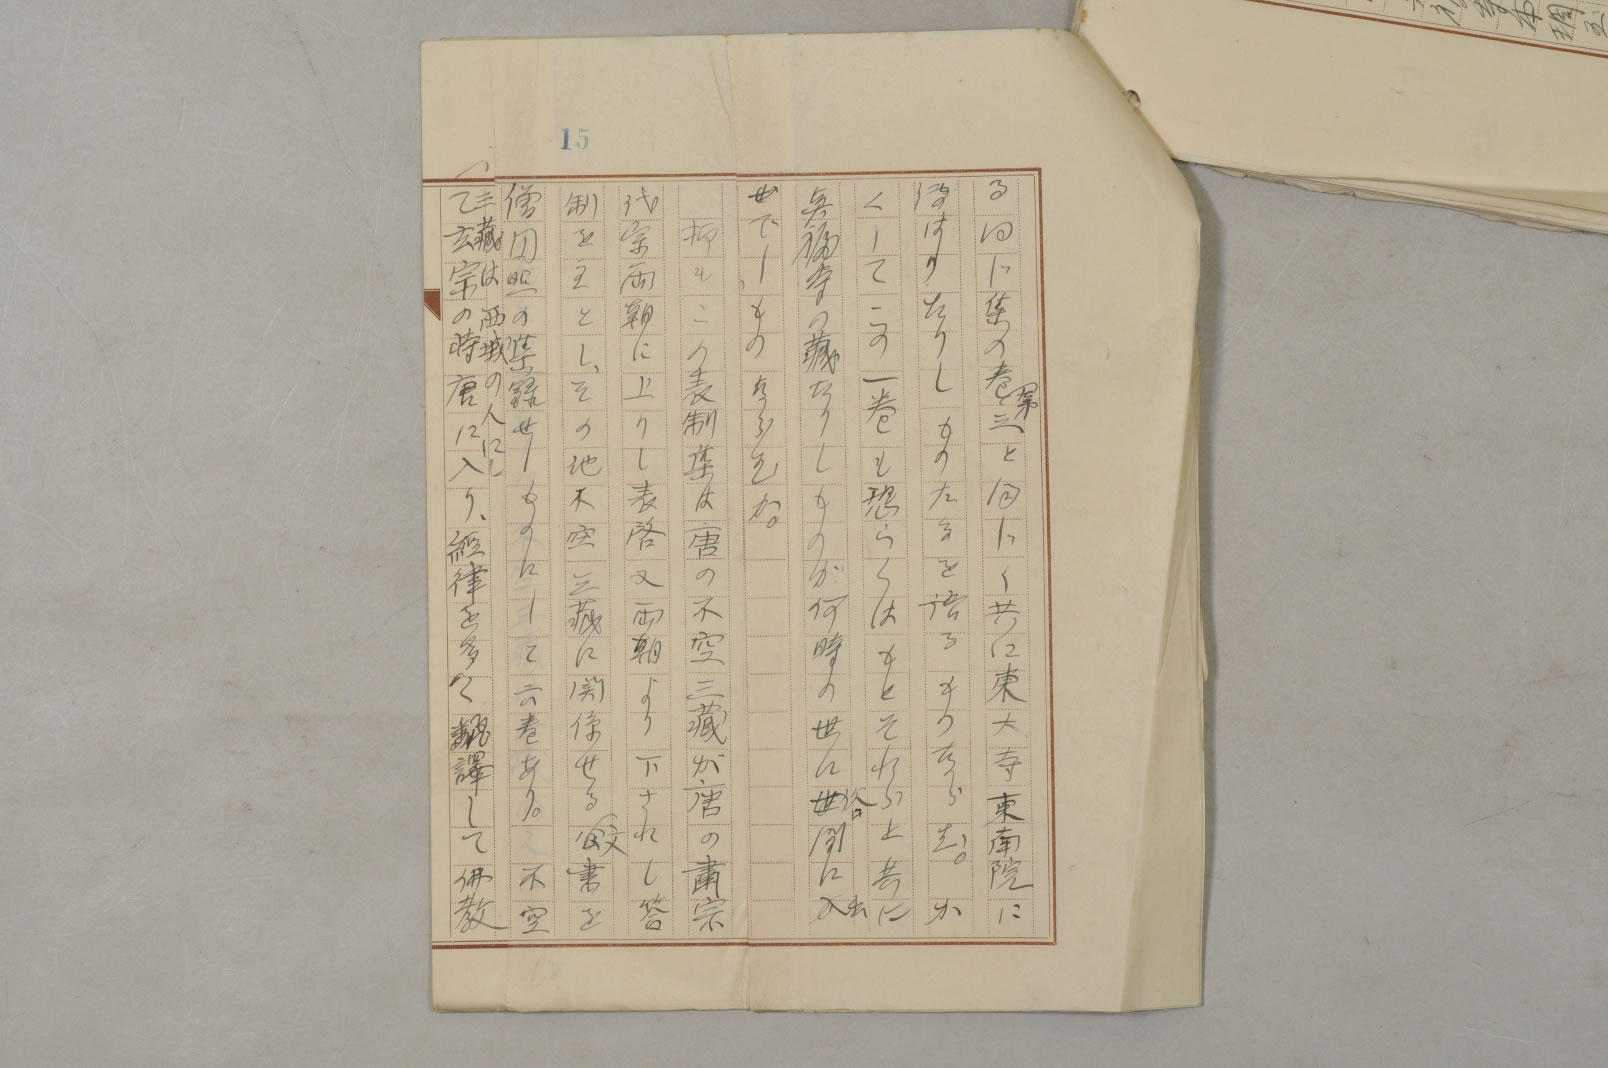 15
る同じ集の巻第三と同じく共に東大寺東南院に
傳はりたりしものたるを語るものならむ。か
くしてこの一巻も恐らくはもとそれらと共に
興福寺の藏たりしものが何時の世に世俗間に出
世でしものならむか。
抑もこの表制集は唐の不空三藏が唐の肅宗
代宗兩朝に上りし表啓又兩朝より下されし答
制を主とし、その他不空三藏に関係せる文書を
僧円照の集錄せしものにして六巻あり。不空
三藏は西域の人にし
て玄宗の時唐に入り、經律を多く飜譯して佛教